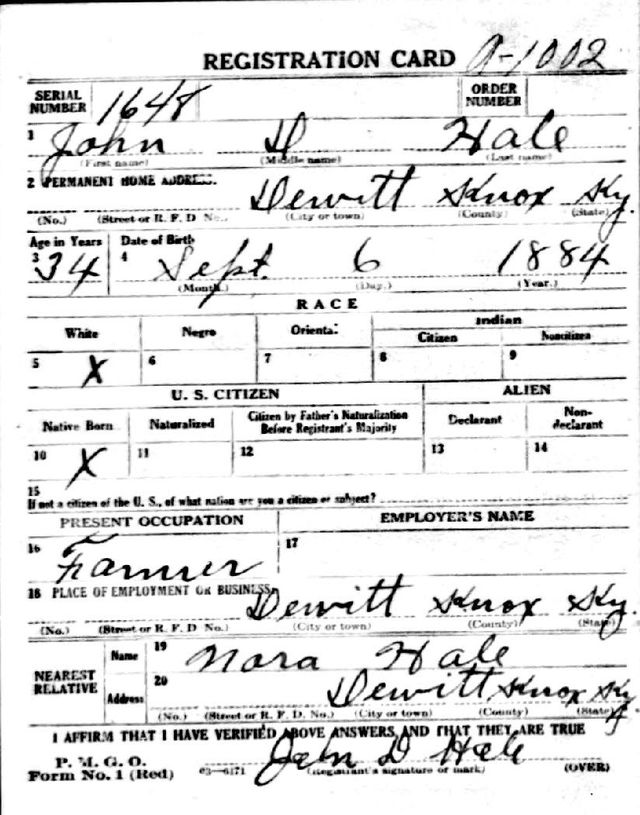 REGISTRATION CARD A-1002
SERIAL NUMBER 1648 ORDER NUMBER
1 John D Hale
(First name) (Middle name) (Last name)
2 PERMANENT HOME ADDRESS.
Dewitt Knox Ky.
(No.) (Street or R. F. D No.) (City or town) (County) (State)
Age in Years Date of Birth
3 34 4 Sept. 6 1884
(Month.) (Day.) (Year.)
RACE
White Negro Oriental Indian
Citizen Noncitizen
5 X 6 7 8 9
U. S. CITIZEN ALIEN
Native Born Naturalized Citizen by Father's Naturalization Before Registrant's Majority Declarant Non-declarant
10 X 11 12 13 14
15
If not a citizen of the U. S., of what nation are you a citizen or subject?
PRESENT OCCUPATION EMPLOYER'S NAME
16 Farmer 17
18 PLACE OF EMPLOYMENT OR BUSINESS.
Dewitt Knox Ky.
(No.) (Street or R. F. D No.) (City or town) (County) (State)
NEAREST RELATIVE Name 19 Nora Hale
Address 20 Dewitt Knox Ky
(No.) (Street or R. F. D. No.) (City or town) (County) (State)
I AFFIRM THAT I HAVE VERIFIED ABOVE ANSWERS AND THAT THEY ARE TRUE
P. M. G. O.
Form No. 1 (Red) 03—6171 John D Hale
(Registrant's signature or mark) (OVER)